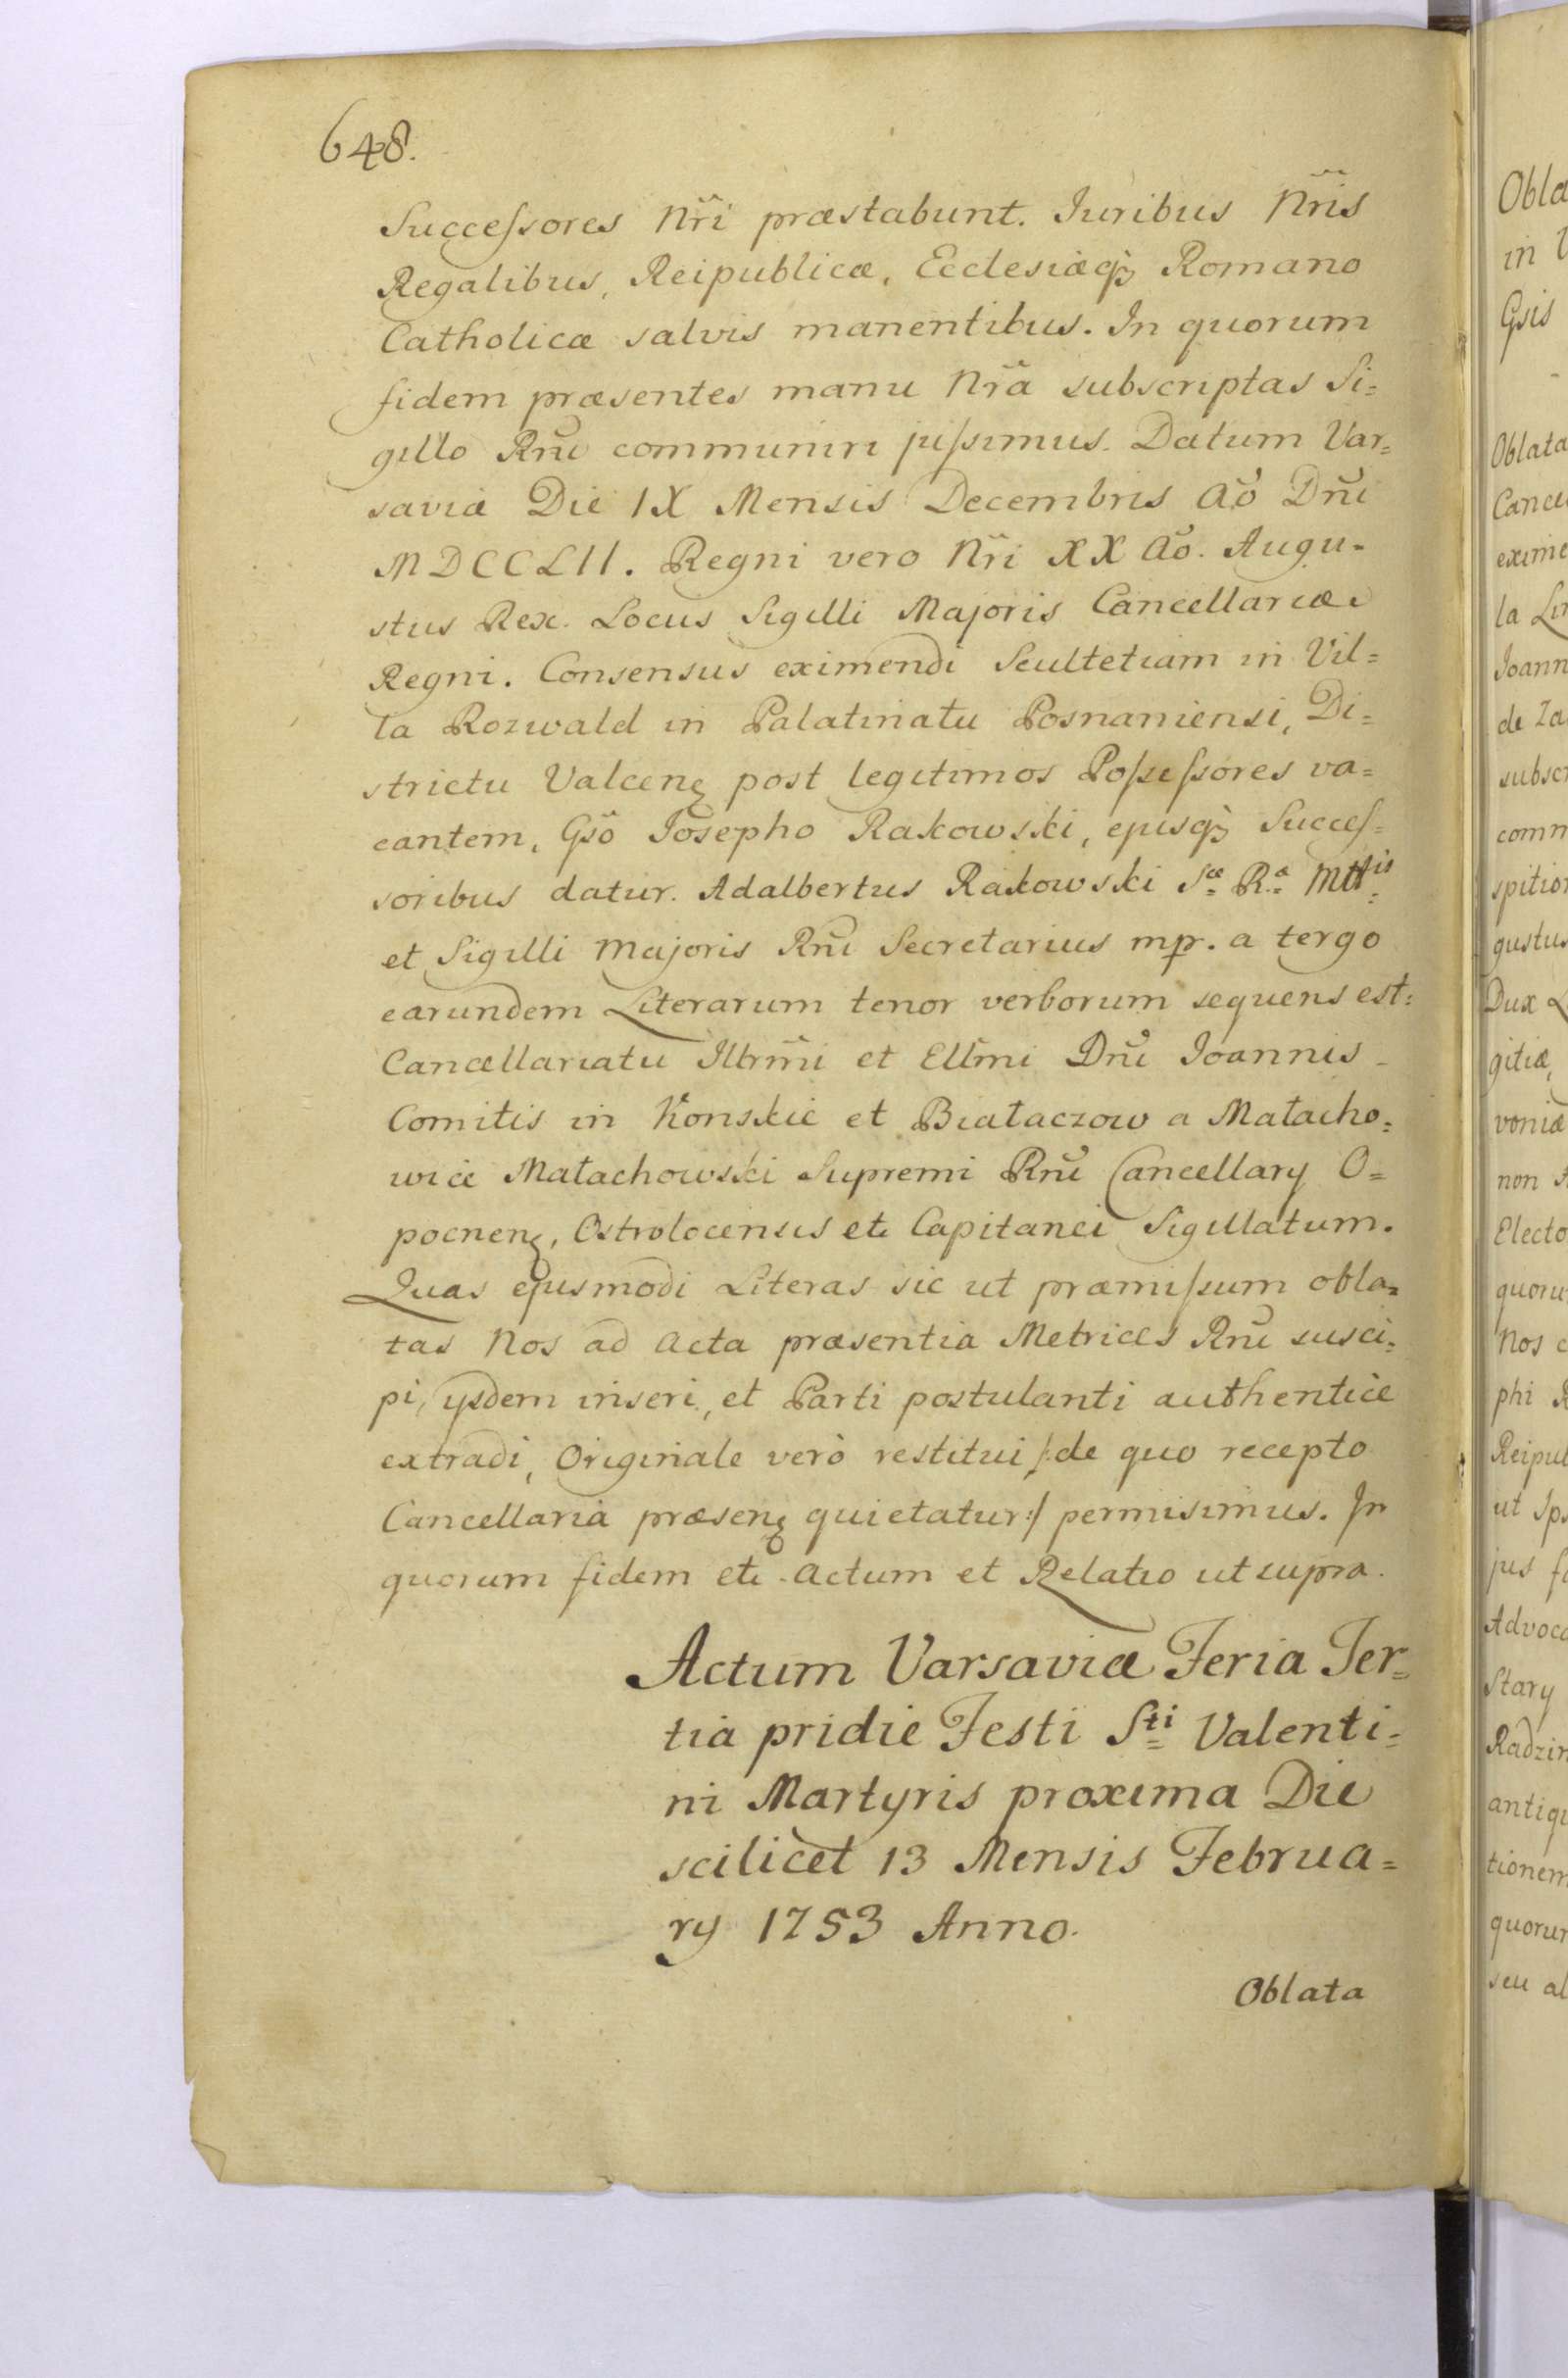 648.
Successores Nr̃i præstabunt. Juribus Nr̃is
Regalibus, Reipublicæ, Ecclesiæq́₃ Romano
Catholicæ salvis manentibus. In quorum
fidem præsentes manu Nr̃a subscriptas Si=
gillo Rñi communiri jussimus. Datum Var=
saviæ Die IX Mensis Decembris Aõ Dñi
MDCCLII. Regni vero Nr̃i XX Aõ. Augu=
stus Rex. Locus Sigilli Majoris Cancellariæ
Regni. Consensus eximendi Scultetiam in Vil=
la Rozwald in Palatinatu Posnaniensi, Di=
strictu Valcenȩ post legitimos Possessores va=
cantem, Gsõ Josepho Rakowski, ejusq́₃ Succes=
soribus datur. Adalbertus Rakowski Sæ Ræ Mttis
et Sigilli Majoris Rñi Secretarius mp. a tergo
earundem Literarum tenor verborum sequens est:
Cancellariatu Illrm̃i et Ellm̃i Dñi Joannis
Comitis in Konskie et Białaczow a Małacho=
wice Małachowski Supremi Rñi Cancellary O=
pocnenȩ, Ostrolocensis etc Capitanei Sigillatum.
Quas ejusmodi Literas sic ut præmissum obla=
tas Nos ad Acta præsentia Metrices Rñi susci=
pi, ysdem inseri, et Parti postulanti authentice
extradi, Originale verò restitui /:de quo recepto
Cancellaria præsenȩ quietatur:/ permisimus. In
quorum fidem etc. Actum et Relatio ut supra.
Actum Varsaviæ Feria Ter=
tia pridie Festi Sti Valenti=
ni Martyris proxima Die
scilicet 13 Mensis Februa=
ry 1753 Anno.
Oblata
Obla
in
Gsis
Oblata
Cance
exime
la
Joann
de Za
subscr
comm
spitior
gustus
Dux
gitiæ,
voniæ
non
Electo
quoru
Nos
phi
Reipul
ut
jus
Advoca
Stary
Radzin
antiqu
tionem
quorum
seu al